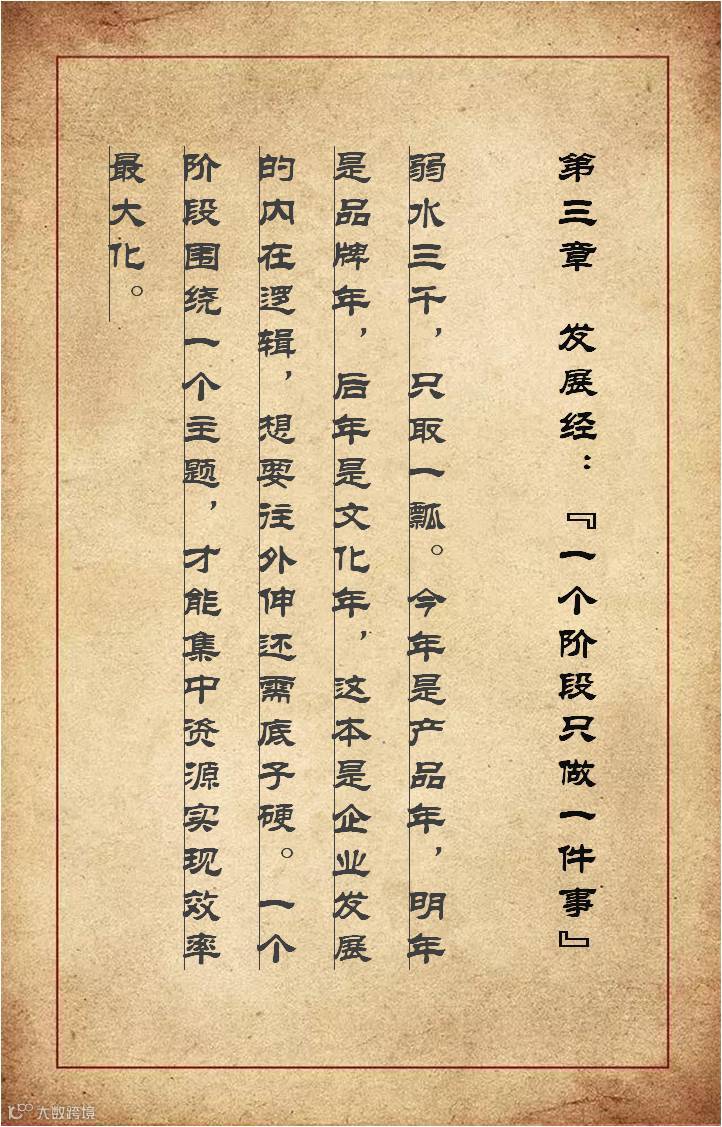 第三章 发展经：『一个阶段只做一件事』
弱水三千，只取一瓢。今年是产品年，明年
是品牌年，后年是文化年，这本是企业发展
的内在逻辑，想要往外伸还需底子硬。一个
阶段围绕一个主题，才能集中资源实现效率
最大化。
大数跨境